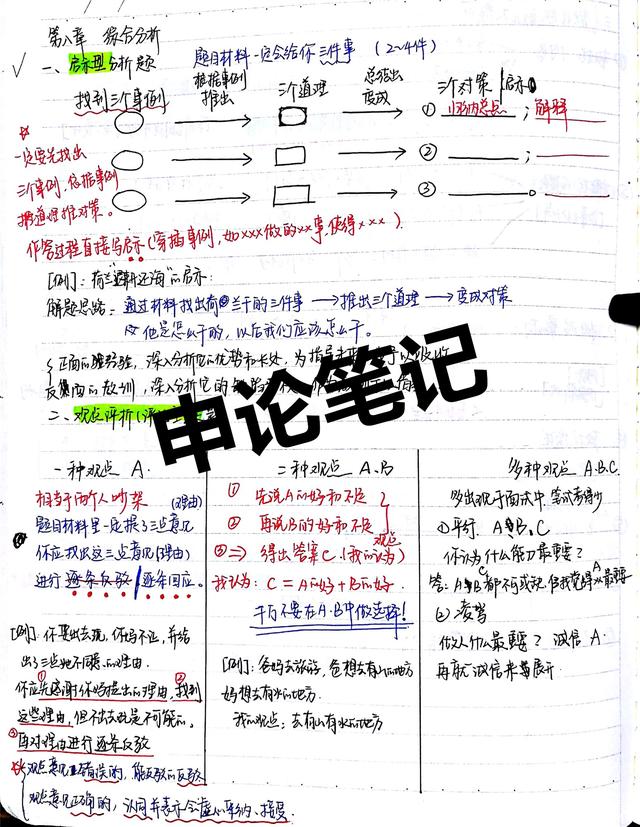 第八章 综合分析
一、启示型分析题 题目材料一定会给你三件事 (2~4件)
找到三个事例 根据事例推出 三个道理 总结出变成 三个对策/启示
① 归纳总点；解释
②
③
一定要先找出
三个事例，依据事例
推道理推对策。
作答过程直接写启示(穿插事例，如xxx做的xx事，使得xxx).
[例]：荷兰"退耕还海"的启示：
解题思路：通过材料找出荷兰干的三件事 → 推出三个道理 → 变成对策
他是怎么干的，以后我们应该怎么干。
正面的经验，深入分析它的优势和长处，为指导
反面的教训，深入分析它的
二、观点评析(评
申论笔记
一种观点 A.
相当于两个人吵架 (理由)
题目材料里一定提了三点意见
你应找以这三点意见(理由)
进行逐条反驳/逐条回应。
[例]：你要出去玩，你妈不让，并给
出了三点她不同意的理由.
你应①先感谢你妈提出的理由，②找到
这些理由，但不出去玩是不可能的。
③再对理由进行逐条反驳
观点意见是错误的，能反驳的反驳
观点意见正确的，认同并表示会虚心采纳、接受
二种观点 A、B
① 先说A的好和不足
② 再说B的好和不足
③ ⇒ 得出答案C.(我的认为) 观点
我认为：C = A的好+B的好.
千万不要在A.B中做选择！
[例]：爸妈去旅游，爸想去有山的地方
妈想去有水的地方.
我的观点：去有山有水的地方
多种观点 A.B.C.
多出现于面试中，笔试考得少
①平行. A、B、C
你认为什么能力最重要？
答：A、B、C都不可或缺，但我觉得A最重要
②凌驾
做人什么最重要？ 诚信 A.
再就"诚信"来展开.